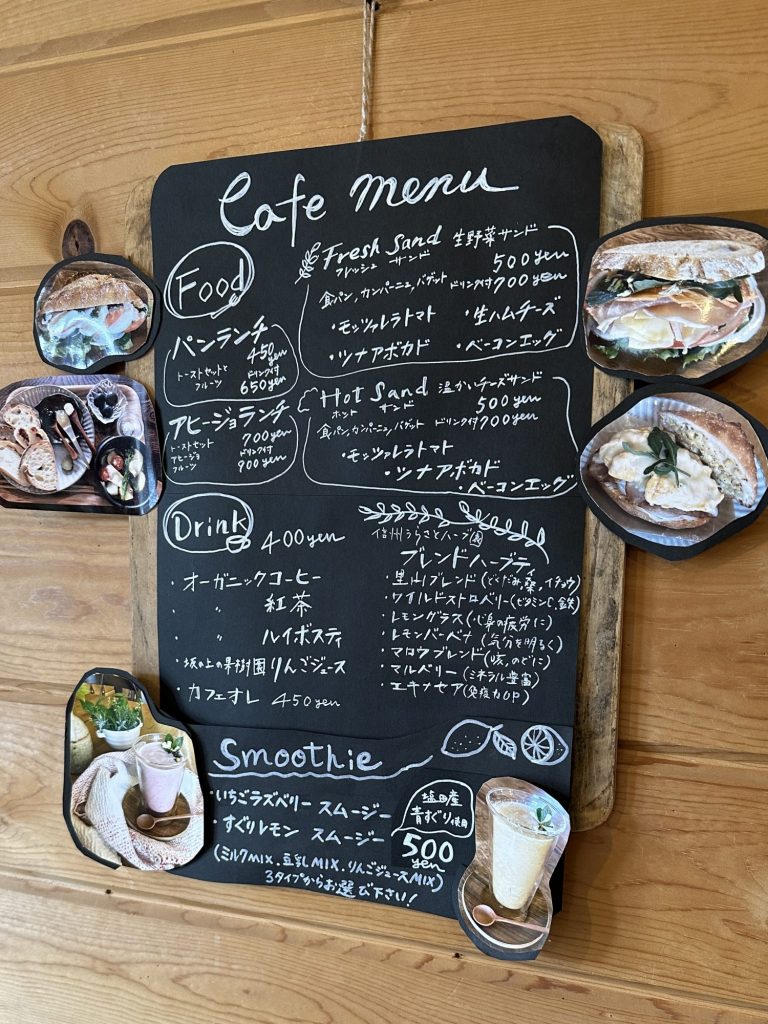 Cafe menu
Food
パンランチ
450 yen
トーストセットと
フルーツ
ドリンク付
650 yen
アヒージョランチ
700 yen
トーストセット
アヒージョ
フルーツ
ドリンク付
900 yen
Fresh Sand 生野菜サンド
フレッシュ サンド
500 yen
食パン,カンパーニュ,バゲット ドリンク付700 yen
・モッツァレラトマト ・生ハムチーズ
・ツナアボカド ・ベーコンエッグ
Hot Sand 温かいチーズサンド
ホット サンド
500 yen
食パン,カンパーニュ,バゲット ドリンク付700 yen
・モッツァレラトマト
・ツナアボカド
・ベーコンエッグ
Drink 400 yen
・オーガニックコーヒー
〃 紅茶
〃 ルイボスティ
・坂の上の果樹園りんごジュース
・カフェオレ 450 yen
信州うらさとハーブ園
ブレンドハーブティ
・里山ブレンド(どくだみ,桑,イチョウ)
・ワイルドストロベリー(ビタミンC,鉄)
・レモングラス(心身の疲労に)
・レモンバーベナ(気分を明るく)
・マロウブレンド(咳,のどに)
・マルベリー(ミネラル豊富)
・エキナセア(免疫力UP)
Smoothie
・いちごラズベリー スムージー
・すぐりレモン スムージー
(ミルクMIX.豆乳MIX.りんごジュースMIX)
3タイプからお選び下さい!
塩田産
青すぐり使用
500
yen